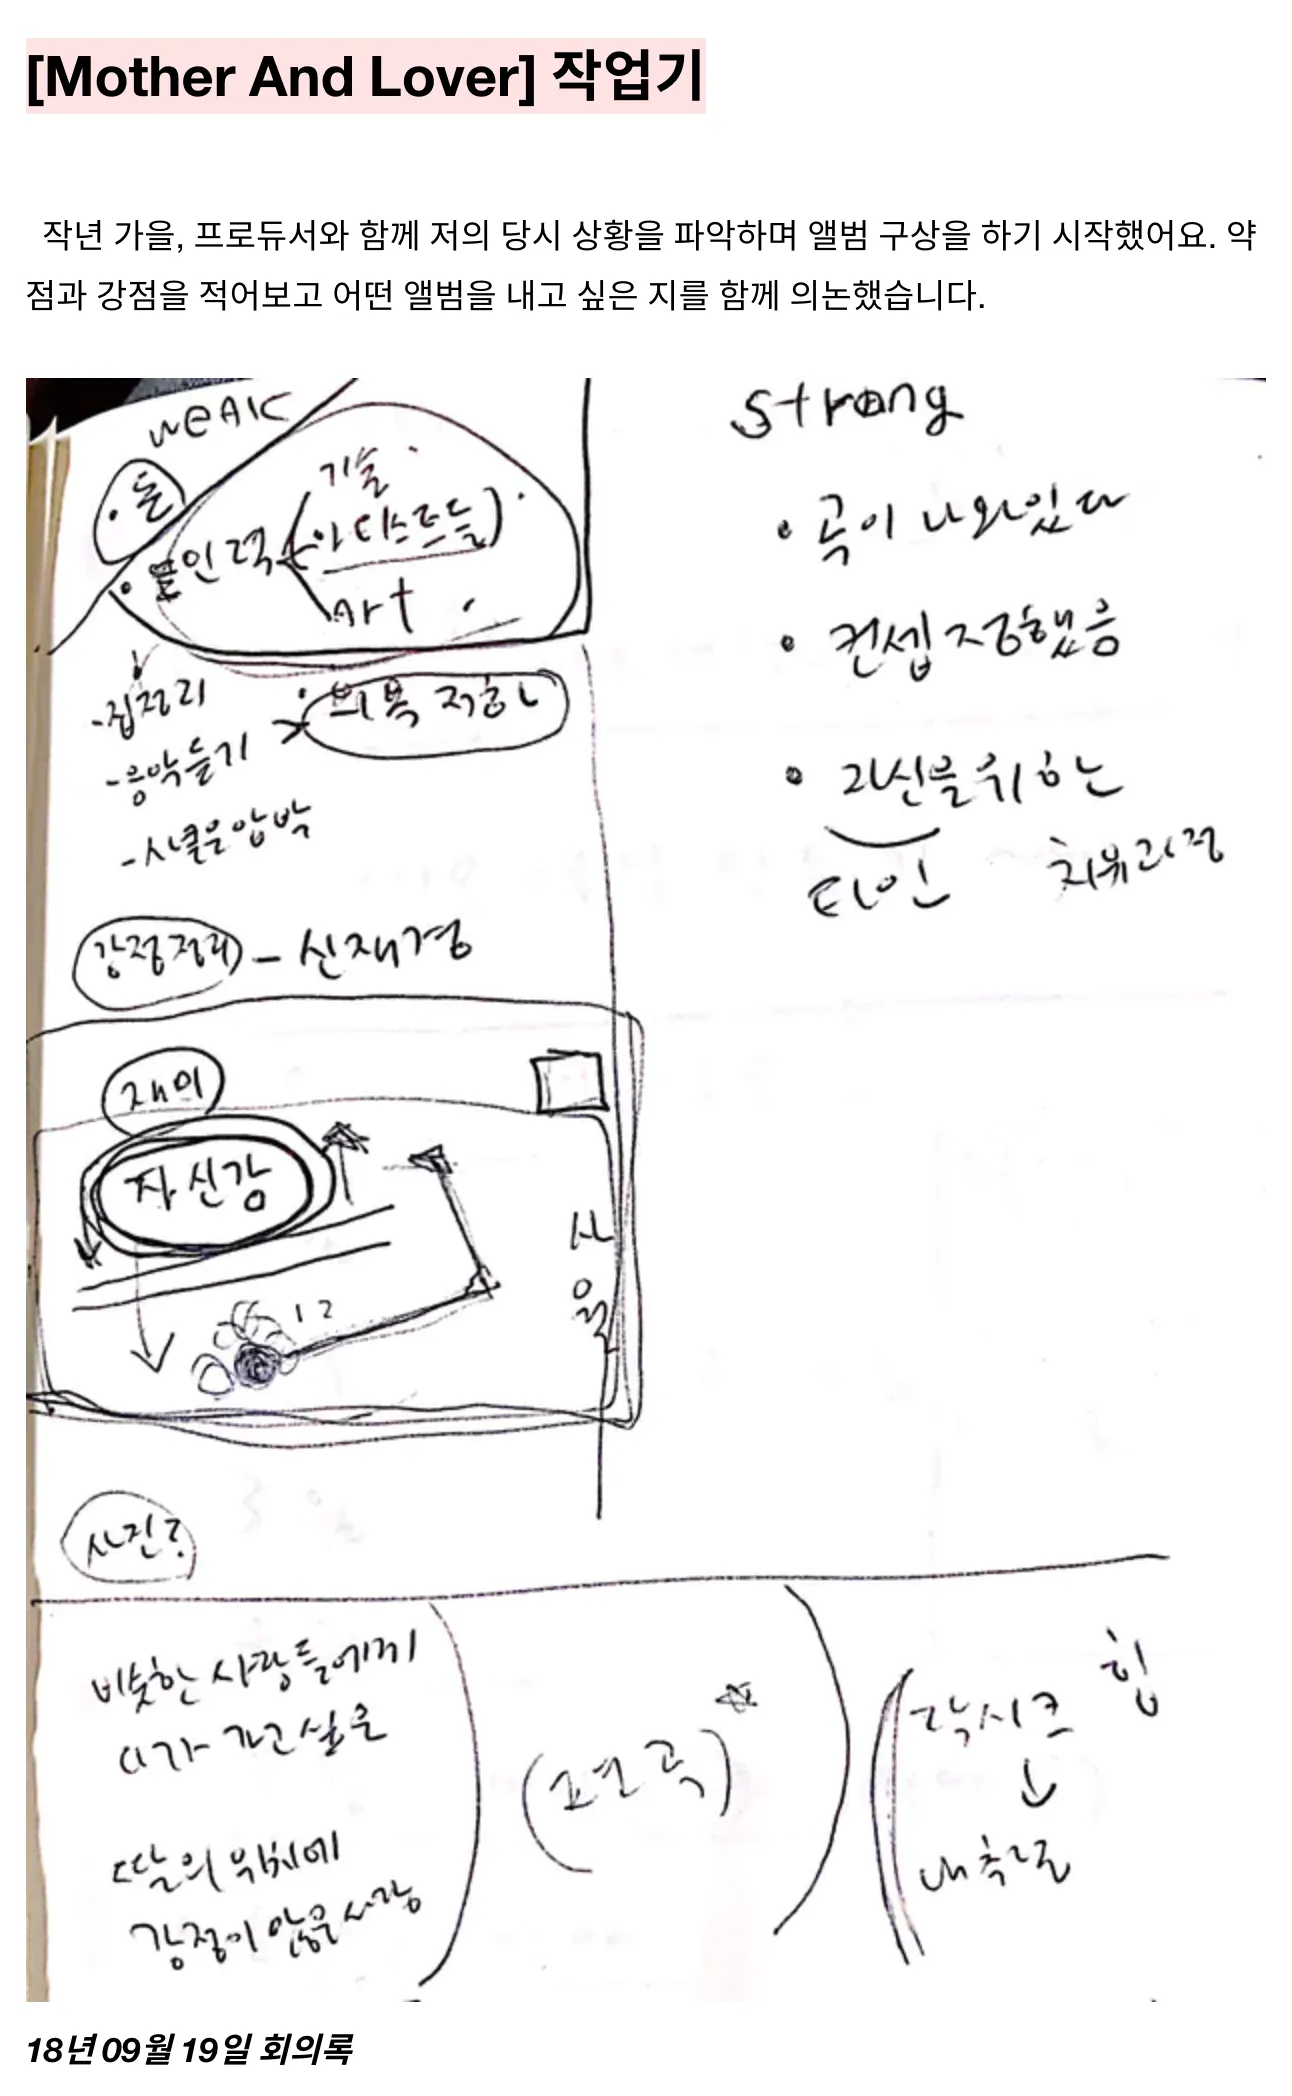 [Mother And Lover] 작업기
작년 가을, 프로듀서와 함께 저의 당시 상황을 파악하며 앨범 구상을 하기 시작했어요. 약
점과 강점을 적어보고 어떤 앨범을 내고 싶은 지를 함께 의논했습니다.
weak
• 돈
기술
• 인력 (아티스트들)
Art
- 집정리
- 음악듣기
• 의욕 저하
- 시클은압박
감정정리 - 신재경
재의
자신감
12
사운
사진?
strong
• 곡이 나와있다
• 컨셉 정했음
• 자신을 위한
타인 치유과정
비슷한 사람들에게
다가가고싶은
딸의 위치에
감정이 않은 사람
(편곡)
락시크 힙
↓
내추럴
18년 09월 19일 회의록